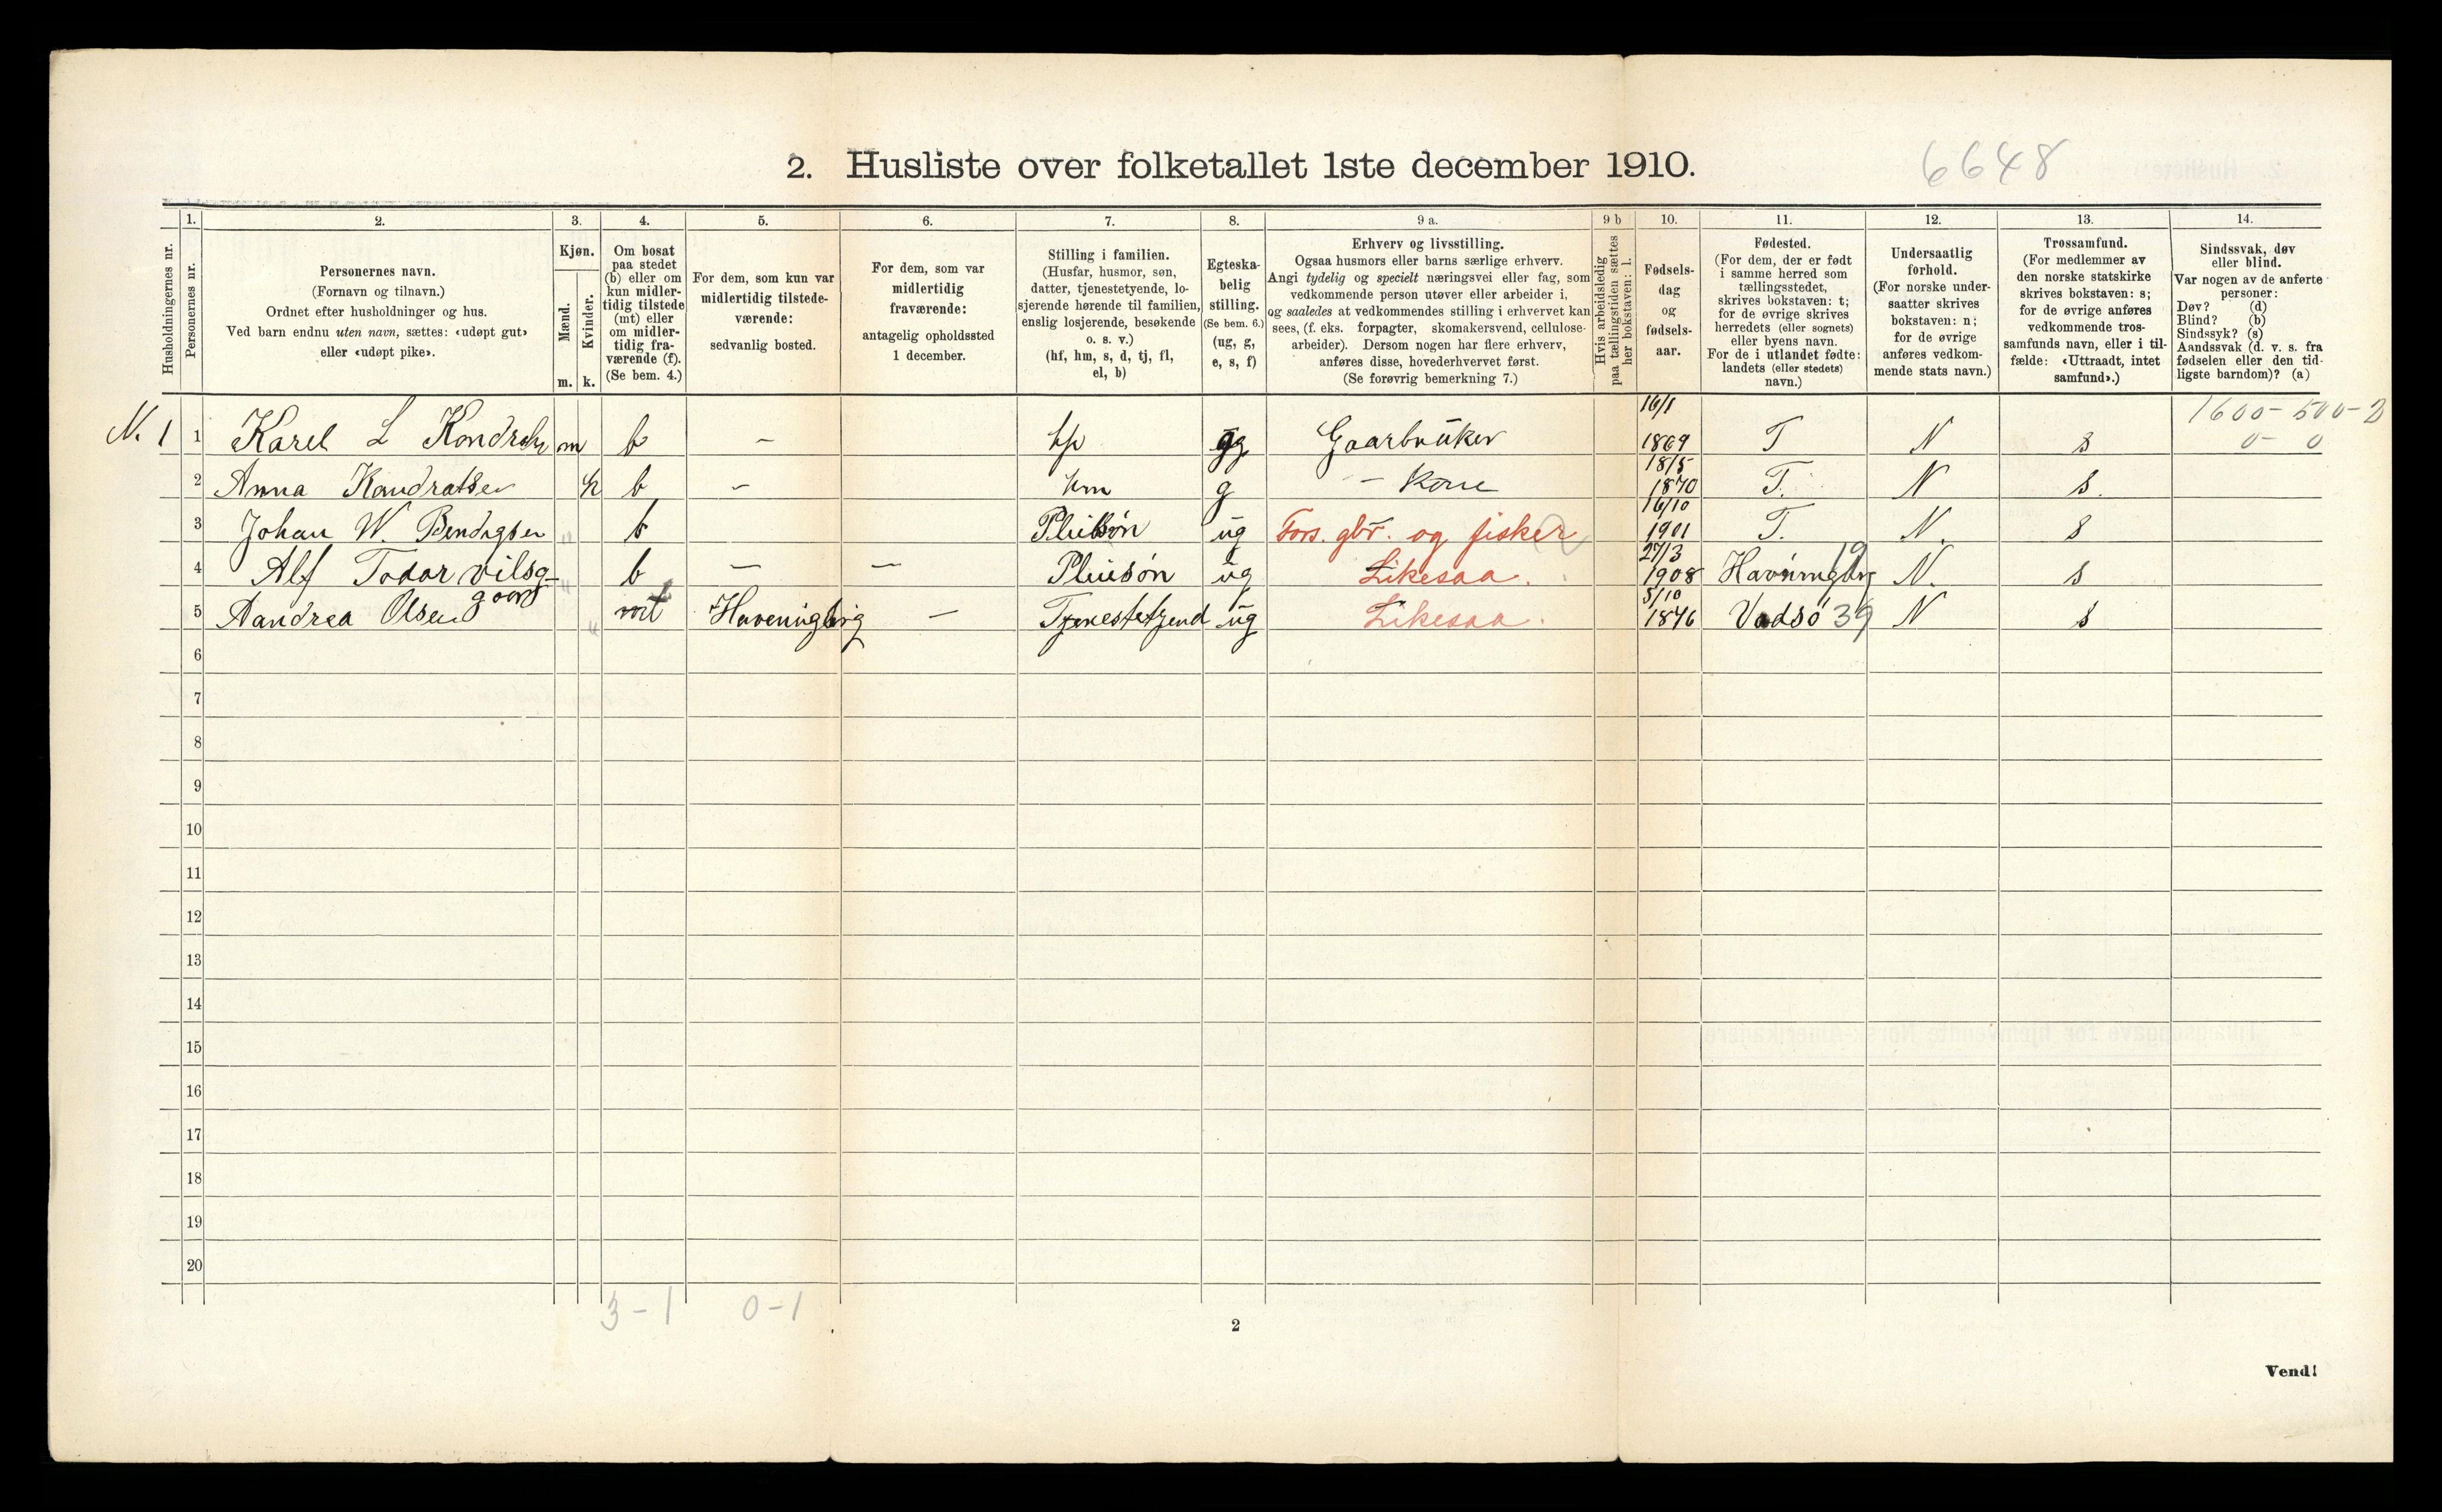 2. Husliste over folketallet 1ste december 1910.
6648
Husholdningernes nr.
1.
Personernes nr.
2.
Personernes navn.
(Fornavn og tilnavn.)
Ordnet efter husholdninger og hus.
Ved barn endnu uten navn, sættes: «udøpt gut»
eller «udøpt pike».
3.
Kjøn.
Mænd.
Kvinder.
m. k.
4.
Om bosat
paa stedet
(b) eller om
kun midler-
tidig tilstede
(mt) eller
om midler-
tidig fra-
værende (f).
(Se bem. 4.)
5.
For dem, som kun var
midlertidig tilstede-
værende:
sedvanlig bosted.
6.
For dem, som var
midlertidig
fraværende:
antagelig opholdssted
1 december.
7.
Stilling i familien.
(Husfar, husmor, søn,
datter, tjenestetyende, lo-
sjerende hørende til familien,
enslig losjerende, besøkende
o. s. v.)
(hf, hm, s, d, tj, fl,
el, b)
8.
Egteska-
belig
stilling.
(Se bem. 6.)
(ug, g,
e, s, f)
9 a.
Erhverv og livsstilling.
Ogsaa husmors eller barns særlige erhverv.
Angi tydelig og specielt næringsvei eller fag, som
vedkommende person utøver eller arbeider i,
og saaledes at vedkommendes stilling i erhvervet kan
sees, (f. eks. forpagter, skomakersvend, cellulose-
arbeider). Dersom nogen har flere erhverv,
anføres disse, hovederhvervet først.
(Se forøvrig bemerkning 7.)
9 b
Hvis arbeidsledig
paa tællingstiden sættes
her bokstaven: l.
10.
Fødsels-
dag
og
fødsels-
aar.
11.
Fødested.
(For dem, der er født
i samme herred som
tællingsstedet,
skrives bokstaven: t;
for de øvrige skrives
herredets (eller sognets)
eller byens navn.
For de i utlandet fødte:
landets (eller stedets)
navn.)
12.
Undersaatlig
forhold.
(For norske under-
saatter skrives
bokstaven: n;
for de øvrige
anføres vedkom-
mende stats navn.)
13.
Trossamfund.
(For medlemmer av
den norske statskirke
skrives bokstaven: s;
for de øvrige anføres
vedkommende tros-
samfunds navn, eller i til-
fælde: «Uttraadt, intet
samfund».)
14.
Sindssvak, døv
eller blind.
Var nogen av de anførte
personer:
Døv? (d)
Blind? (b)
Sindssyk? (s)
Aandssvak (d. v. s. fra
fødselen eller den tid-
ligste barndom)? (a)
1600-500-2
0-0
N. 1 1 Karel L m b – g Gaarbrüker 16/1 1869 T N s
2 Anna Kondratsen k b – hm g – Kone 18/5 1870 T. N s.
3 Johan W. Bendigsen " b Pleisön ug Fors. gbr. og fisker 16/10 1901 T. N. s
4 Alf Todor vilsg- " b – – Pleisön ug Likesaa. 27/3 1908 19 N. s
gaard
5 Aandrea Olsen " mt Havenigbrig – ug Likesaa. 5/10 1876 Vadsö 39 N s
6
7
8
9
10
11
12
13
14
15
16
17
18
19
20
3-1 0-1
2
Vend!